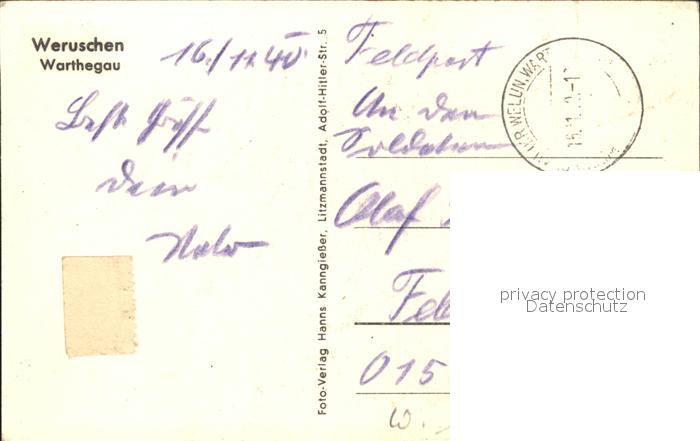 Weruschen
Warthegau
16./11.40
Beste Grüße
Dein
Foto-Verlag Hanns Kanngießer, Litzmannstadt, Adolf-Hitler-Str. 5
Feldpost
An den
Soldaten
Olaf
Fel
015
W.
KR. WELUN. WART
privacy protection
Datenschutz